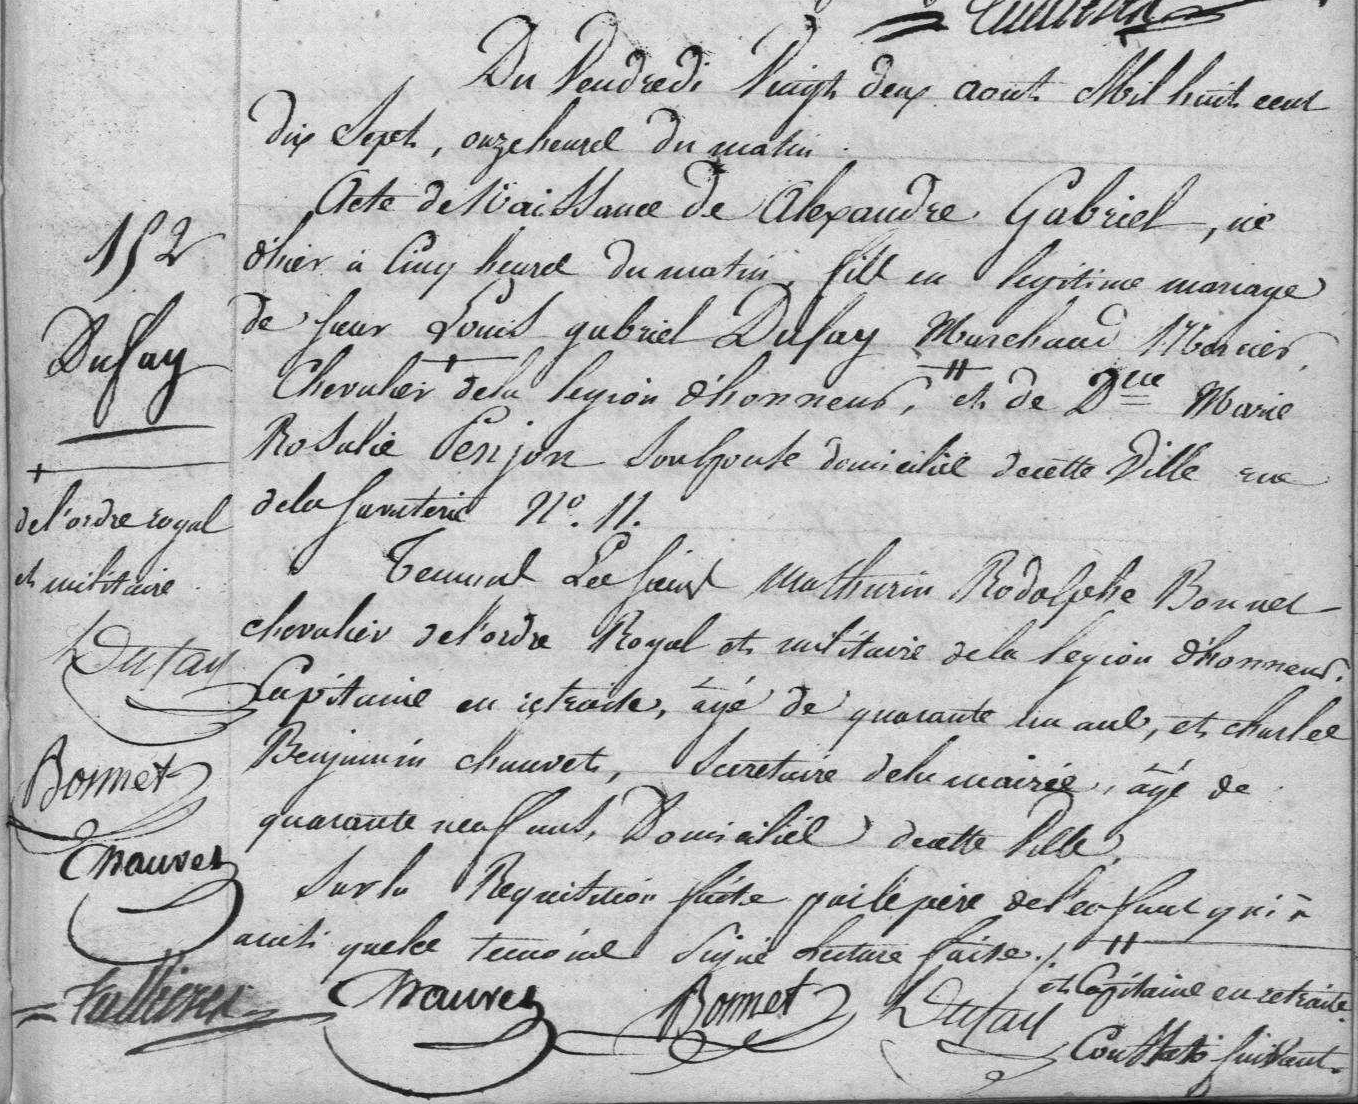 Du Vendredi Vingt deux aout Mil huit cent
dix Sept, onze heures du matin.
Acte de Naissance de Alexandre Gabriel, né
d'hier à Cinq heures du matin, fils en legitime mariage
de sieur Louis gabriel Dufay Marchand Mercier,
Chevalier + de la legion d'honneur, # et de Dme Marie
Rosalie Penjon Son Epouse domiciliés de cette Ville rue
de la Savaterie No. 11.
Temoins Les sieurs Mathurin Rodolphe Bonnet
chevalier de l'ordre Royal et militaire de la legion d'honneur,
Capitaine en retraite, âgé de quarante un ans, et charles
Benjamin chauvet, Secretaire de la mairie, âgé de
quarante neuf ans, Domiciliés de cette Ville,
Sur la Requisition faite par le père de l'enfant qui à
ainsi que les temoins Signé Lecture faite.
# et Capitaine en retraite.
Constaté suivant
Chauvet Bonnet LDufay
152
Dufay
+
de l'ordre royal
et militaire
LDufay
Bonnet
Chauvet